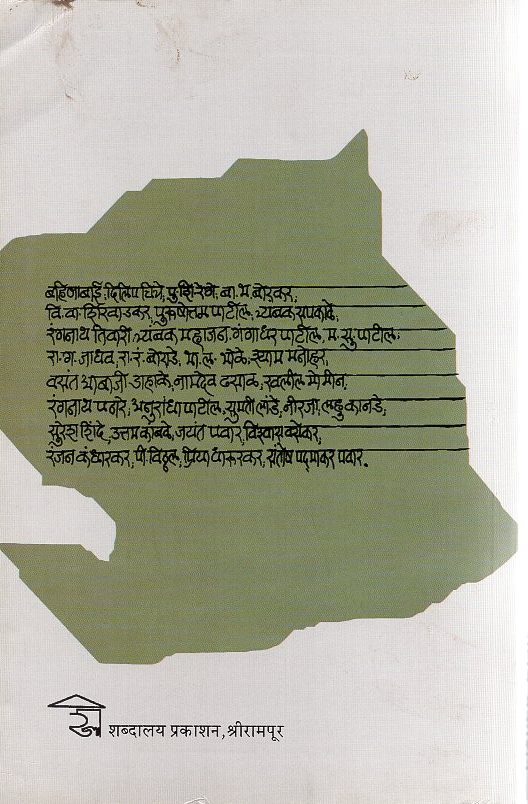 बहिणाबाई, दिलिप चित्रे, पु. शि. रेगे, बा. भ. बोरकर,
वि. वा. शिरवाडकर, पुरुषोत्तम पाटील, त्र्यंबक सपकाळे,
रंगनाथ तिवारी, त्र्यंबक महाजन, गंगाधर पाटील, म. सु. पाटील,
रा. ग. जाधव, रा. रं. बोराडे, भा. ल. भोळे, श्याम मनोहर,
वसंत आबाजी डहाके, नामदेव ढसाळ, खलील मोमीन,
रंगनाथ पठारे, अनुराधा पाटील, सुमती लांडे, नीरजा, लहू कानडे,
सुरेश शिंदे, उत्तम कांबळे, जयंत पवार, विश्वास वसेकर,
रंजन कंधारकर, पी. विठ्ठल, प्रिया धारूरकर, संतोष पद्माकर पवार.
शब्दालय प्रकाशन, श्रीरामपूर